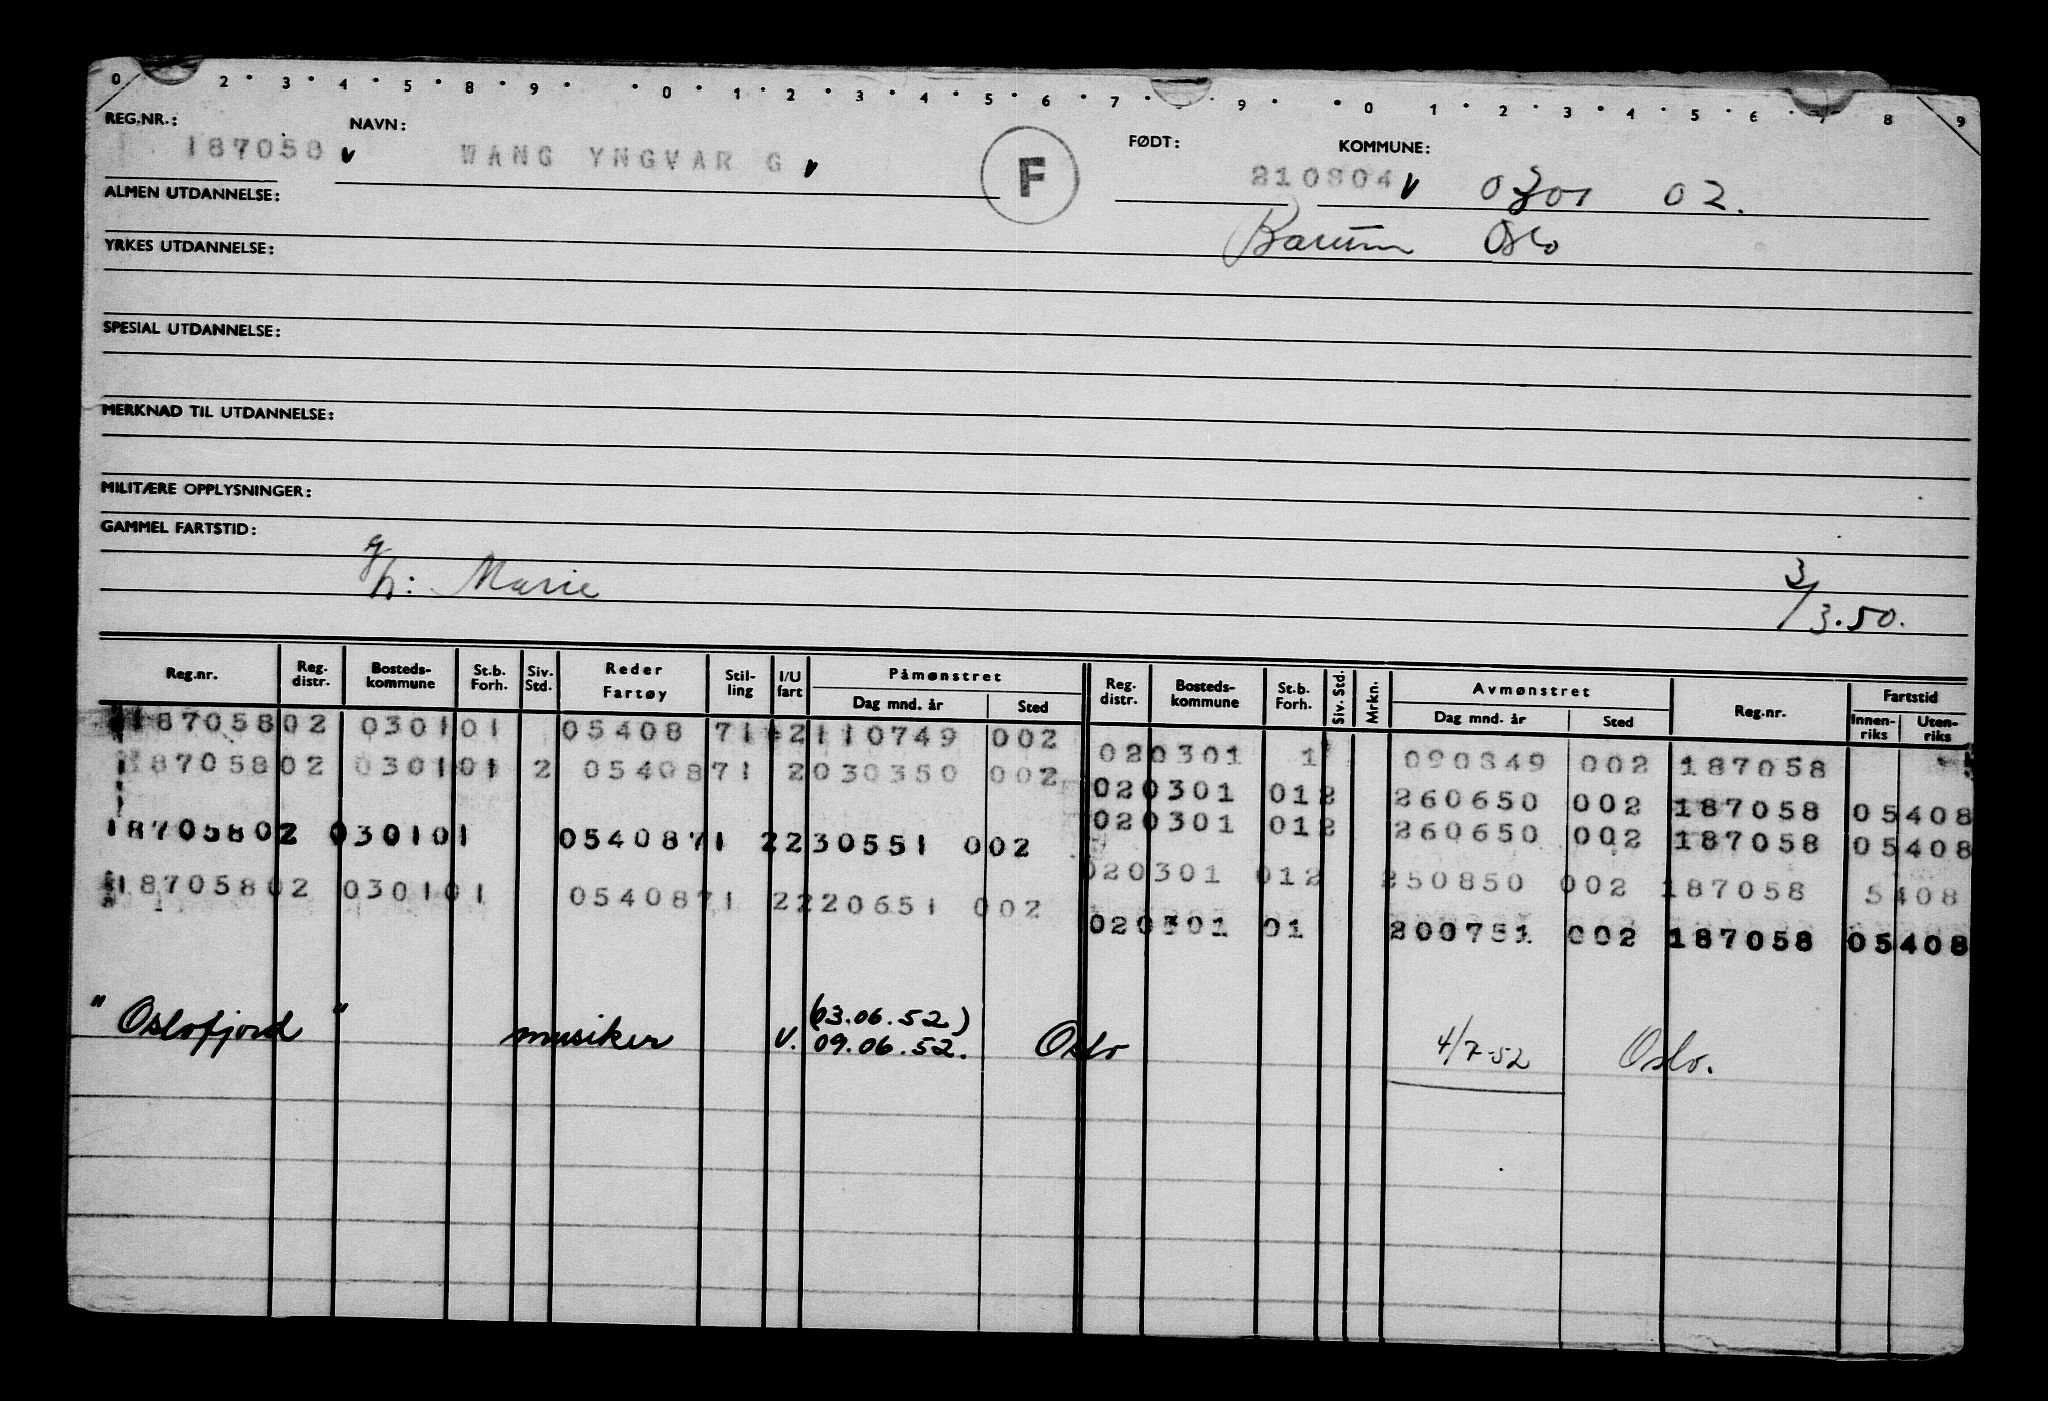 0 2 3 4 5 8 9 0 1 2 3 4 5 6 7 9 0 1 2 3 4 5 6 7 8 9
REG.NR.: NAVN: FØDT: KOMMUNE:
187058 v WANG YNGVAR G v F 210804 v 0301 02.
ALMEN UTDANNELSE:
Bærum Oslo
YRKES UTDANNELSE:
SPESIAL UTDANNELSE:
MERKNAD TIL UTDANNELSE:
MILITÆRE OPPLYSNINGER:
GAMMEL FARTSTID:
g/h: Marie 3/3.50.
Reg.nr. Reg. distr. Bosteds-kommune St.b. Forh. Siv. Std. Reder Fartøy Stil-ling I/U fart Påmønstret Dag mnd. år Sted Reg. distr. Bosteds-kommune St.b. Forh. Siv. Std. Mrkn. Avmønstret Dag mnd. år Sted Reg.nr. Fartstid Innen-riks Uten-riks
18705802 030101 05408 71 2110749 002
020301 1 090849 002 187058
18705802 030101 2 0540871 2030350 002
020301 012 260650 002 187058 05408
020301 012 260650 002 187058 05408
18705802 030101 0540871 2230551 002
020301 012 250850 002 187058 5408
18705802 030101 0540871 2220651 002
020301 01 200751 002 187058 05408
"Oslofjord" musiker U. (03.06.52)
09.06.52. Oslo 4/7-52 Oslo.